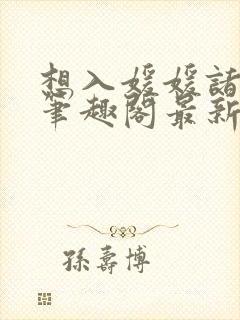 想入媛媛諸
筆趣閣最新
孫壽博